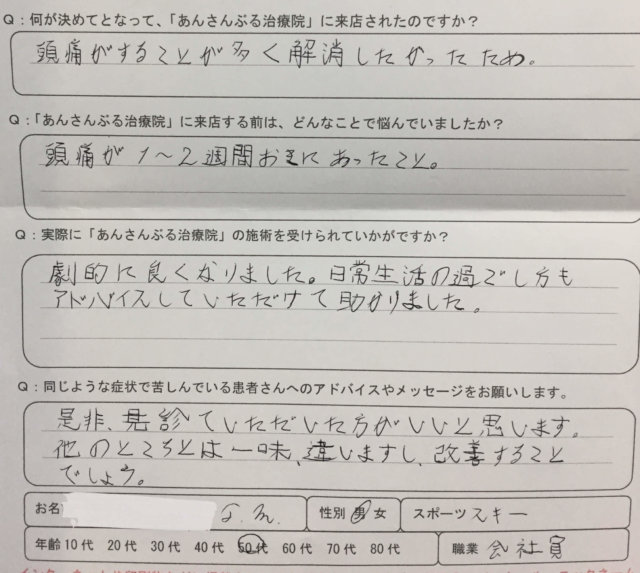 Q：何が決めてとなって、「あんさんぶる治療院」に来店されたのですか？
頭痛がすることが多く解消したかったため。
Q：「あんさんぶる治療院」に来店する前は、どんなことで悩んでいましたか？
頭痛が1〜2週間おきにあったこと。
Q：実際に「あんさんぶる治療院」の施術を受けられていかがですか？
劇的に良くなりました。日常生活の過ごし方も
アドバイスしていただけて助かりました。
Q：同じような症状で苦しんでいる患者さんへのアドバイスやメッセージをお願いします。
是非、診ていただいた方がいいと思います。
他のところとは一味、違いますし、改善すること
でしょう。
お名 性別 男 女 スポーツ スキー
年齢 10代 20代 30代 40代 50代 60代 70代 80代 職業 会社員